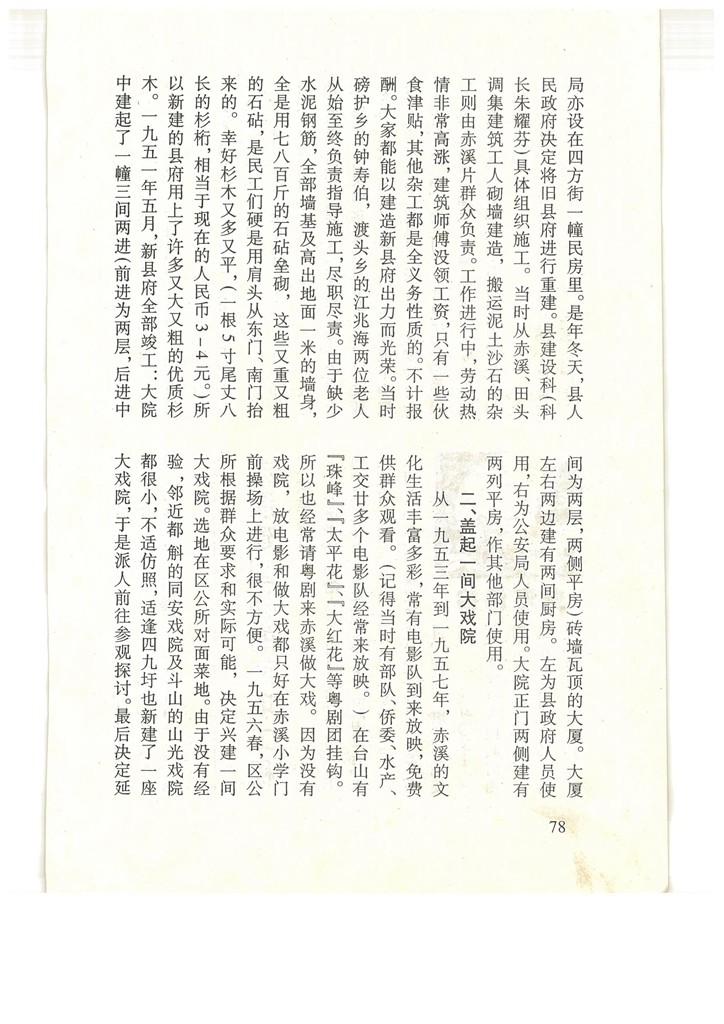 局亦设在四方街一幢民房里。是年冬天,县人
民政府决定将旧县府进行重建。县建设科(科
长朱耀芬)具体组织施工。当时从赤溪、田头
调集建筑工人砌墙建造,搬运泥土沙石的杂
工则由赤溪片群众负责。工作进行中,劳动热
情非常高涨,建筑师傅没领工资,只有一些伙
食津贴,其他杂工都是全义务性质的。不计报
酬。大家都能以建造新县府出力而光荣。当时
磅护乡的钟寿伯,渡头乡的江兆海两位老人
从始至终负责指导施工,尽职尽责。由于缺少
水泥钢筋,全部墙基及高出地面一米的墙身,
全是用七八百斤的石砧垒砌,这些又重又粗
的石砧,是民工们硬是用肩头从东门、南门抬
来的。幸好杉木又多又平,(一根5寸尾丈八
长的杉桁,相当于现在的人民币3-4元。)所
以新建的县府用上了许多又大又粗的优质杉
木。一九五一年五月,新县府全部竣工:大院
中建起了一幢三间两进(前进为两层,后进中
间为两层,两侧平房)砖墙瓦顶的大厦。大厦
左右两边建有两间厨房。左为县政府人员使
用,右为公安局人员使用。大院正门两侧建有
两列平房,作其他部门使用。
二、盖起一间大戏院
从一九五三年到一九五七年,赤溪的文
化生活丰富多彩,常有电影队到来放映,免费
供群众观看。(记得当时有部队、侨委、水产、
工交廿多个电影队经常来放映。)在台山有
『珠峰』、『太平花』、『大红花』等粤剧团挂钩。
所以也经常请粤剧来赤溪做大戏。因为没有
戏院,放电影和做大戏都只好在赤溪小学门
前操场上进行,很不方便。一九五六春,区公
所根据群众要求和实际可能,决定兴建一间
大戏院。选地在区公所对面菜地。由于没有经
验,邻近都斛的同安戏院及斗山的山光戏院
都很小,不适仿照,适逢四九圩也新建了一座
大戏院,于是派人前往参观探讨。最后决定延
78